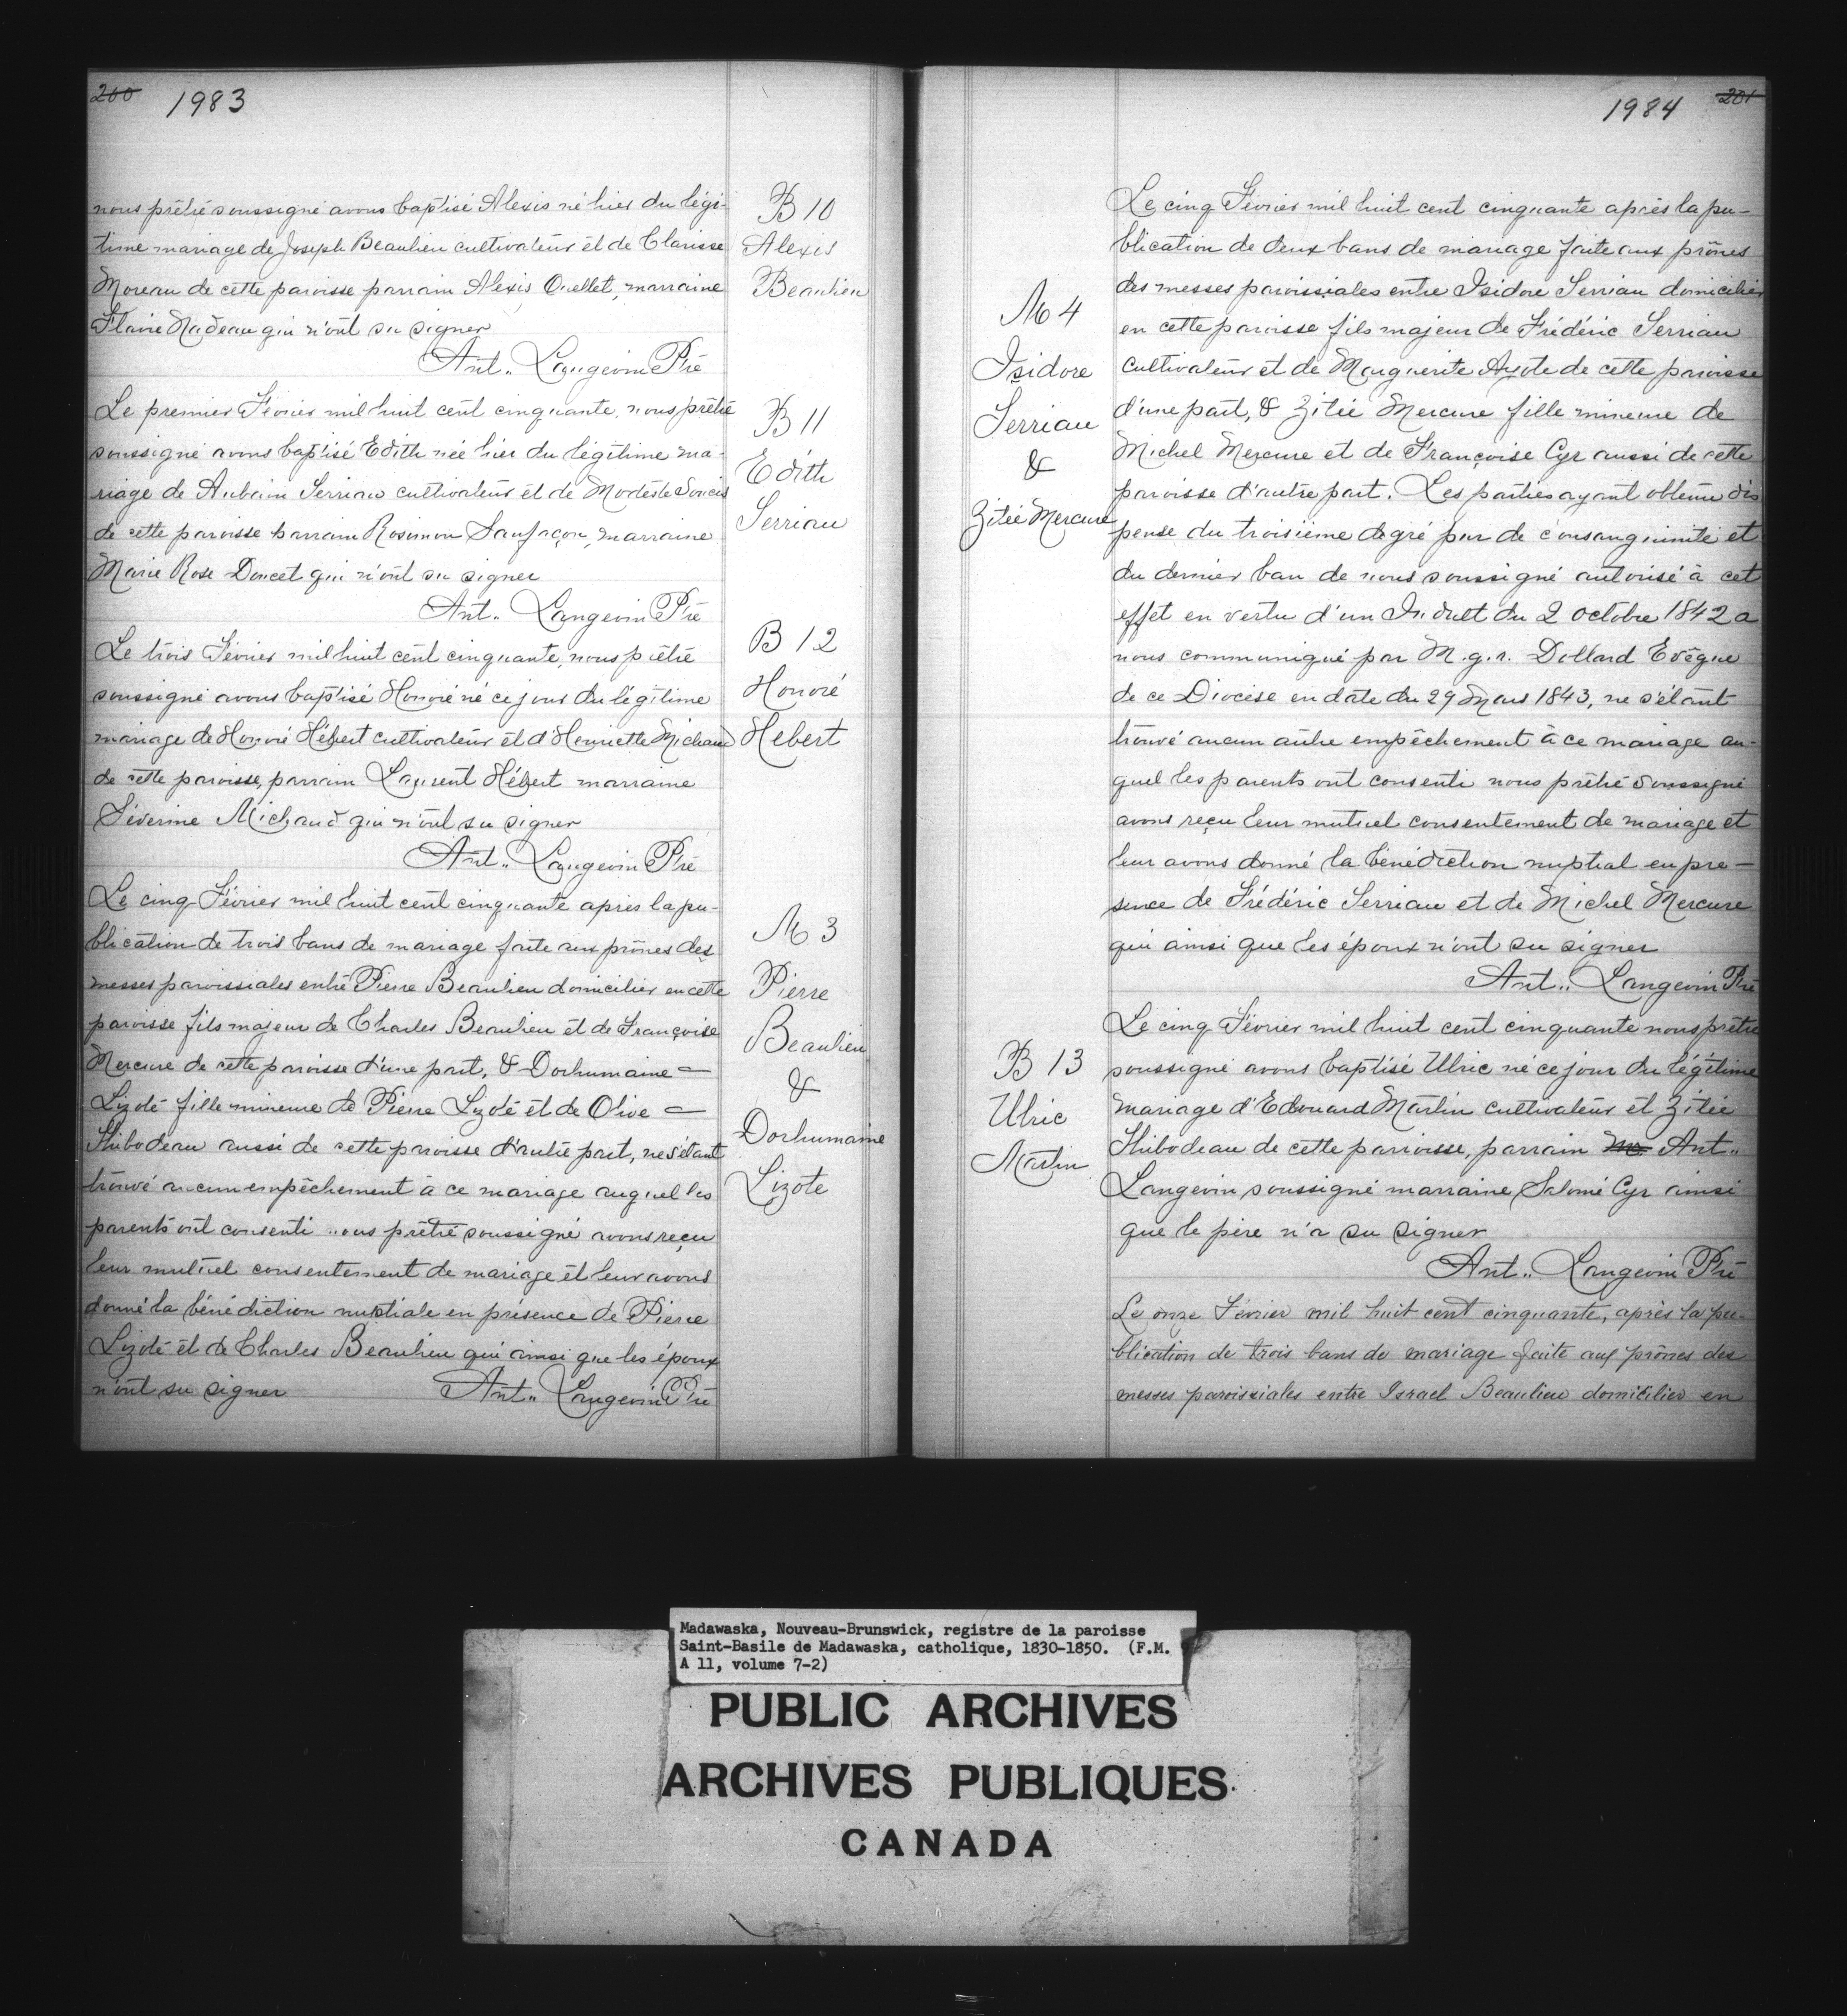 200 1983
nous prêtre soussigné avons baptisé Alexis né hier du légi-
time mariage de Joseph Beaulieu cultivateur et de Clarisse
Moreau de cette paroisse parrain Alexis Ouellet, marraine
Flavie Nadeau qui n'ont su signer
Ant.. Langevin Ptre
B 10
Alexis
Beaulieu
Le premier Février mil huit cent cinquante, nous prêtre
soussigné avons baptisé Edith née hier du légitime ma-
riage de Aubain Serriau cultivateur et de Modeste Soucis
de cette paroisse parrain Rosimon Sanfaçon, marraine
Marie Rose Doucet qui n'ont su signer
Ant.. Langevin Ptre
B 11
Edith
Serriau
Le trois Février mil huit cent cinquante, nous prêtre
soussigné avons baptisé Honoré né ce jour du légitime
mariage de Honoré Hébert cultivateur et d'Henriette Michaud
de cette paroisse, parrain Laurent Hébert marraine
Séverine Michaud qui n'ont su signer
Ant.. Langevin Ptre
B 12
Honoré
Hebert
Le cinq Février mil huit cent cinquante après la pu-
blication de trois bans de mariage faite aux prônes des
messes paroissiales entre Pierre Beaulieu domicilier en cette
paroisse fils majeur de Charles Beaulieu et de Françoise
Mercure de cette paroisse d'une part, & Dorhumaine =
Lizote fille mineure de Pierre Lizote et de Olive =
Thibodeau aussi de cette paroisse d'autre part, ne s'étant
trouvé aucun empêchement à ce mariage auquel les
parents ont consenti nous prêtre soussigné avons reçu
leur mutuel consentement de mariage et leur avons
donné la bénédiction nuptiale en présence de Pierre
Lizote et de Charles Beaulieu qui ainsi que les époux
n'ont su signer Ant.. Langevin Ptre
M 3
Pierre
Beaulieu
&
Dorhumaine
Lizote
1984 201
Le cinq Février mil huit cent cinquante après la pu-
blication de deux bans de mariage faite aux prônes
des messes paroissiales entre Isidore Serriau domicilier
en cette paroisse fils majeur de Frédéric Serriau
cultivateur et de Marguerite Ayote de cette paroisse
d'une part, & Zitée Mercure fille mineure de
Michel Mercure et de Françoise Cyr aussi de cette
paroisse d'autre part. Les parties ayant obtenu dis
pense du troisième degré pur de consanguinité et
du dernier ban de nous soussigné autorisé à cet
effet en vertu d'un Indult du 2 octobre 1842 a
nous communiqué par M.g.r. Dollard Evêque
de ce Diocèse en date du 29 Mars 1843, ne s'étant
trouvé aucun autre empêchement à ce mariage au-
quel les parents ont consenti nous prêtre soussigné
avons reçu leur mutuel consentement de mariage et
leur avons donné la bénédiction nuptial en pre-
sence de Frédéric Serriau et de Michel Mercure
qui ainsi que les époux n'ont su signer
Ant.. Langevin Ptre
M 4
Isidore
Serriau
&
Zitée Mercure
Le cinq Février mil huit cent cinquante nous prêtre
soussigné avons baptisé Ulric né ce jour du légitime
mariage d'Edouard Martin cultivateur et Zitée
Thibodeau de cette parroisse, parrain Ant..
Langevin soussigné marraine, Salomé Cyr ainsi
que le père n'a su signer
Ant.. Langevin Ptre
B 13
Ulric
Martin
Le onze Février mil huit cent cinquante, après la pu-
blication de trois bans de mariage faite aux prônes des
messes paroissiales entre Israel Beaulieu domicilier en
Madawaska, Nouveau-Brunswick, registre de la paroisse
Saint-Basile de Madawaska, catholique, 1830-1850. (F.M.
A 11, volume 7-2)
PUBLIC ARCHIVES
ARCHIVES PUBLIQUES
CANADA